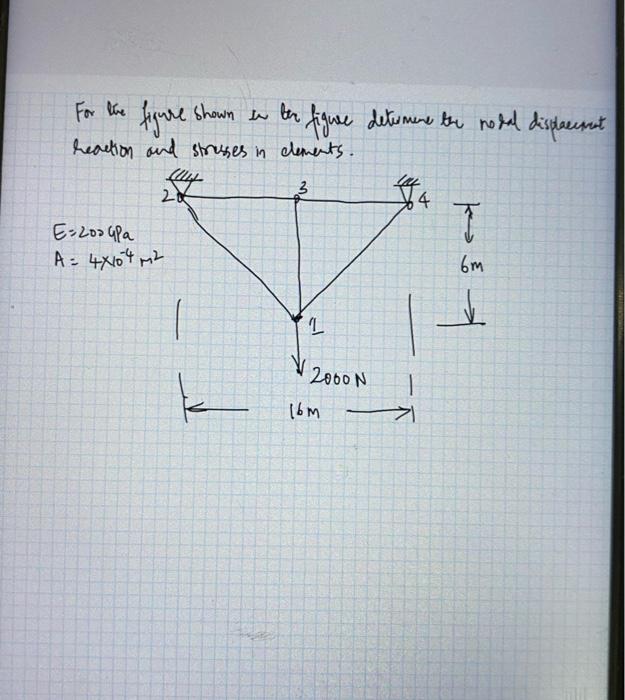 For the figure shown in the figure determine the nodal displacement
Reaction and stresses in elements.
3
2
4
E=200 GPa
A = 4×10⁻⁴ m²
6m
1
2000N
16m